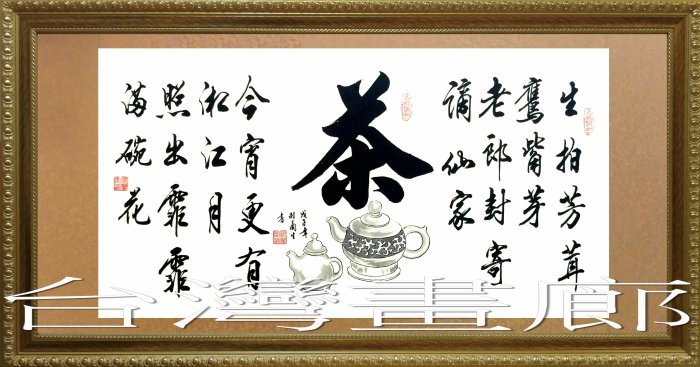 生拍芳茸
鷹觜芽
老郎封寄
謫仙家
茶
今宵更有
湘江月
照出霏霏
滿碗花
戊子年
書
台灣畫廊